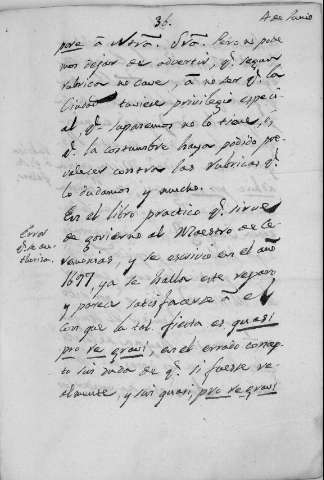 36.
4 de Junio
para á Ntra. Sra. Pero no pode
mos dejar de advertir, q.e segun
rubrica no cave, á no ser q.e la
Ciudad tuviere privilegio especi
al, q.e sepamos no lo tiene, ò
q.e la costumbre haya podido pre
valecer contra las rubricas q.e
lo dudamos y mucho.
En el libro practico q.e sirve
de govierno al Maestro de Ce
remonias, y se escrivio en el año
1697, ya se halla este reparo
y parece satisfacerse á el
con que la tal fiesta es quasi
pro re gravi, en el errado concep
to sin duda de q.e si fuese re
almente, y sin quasi, pro re gravi
Error
q.e se au
thoriza.